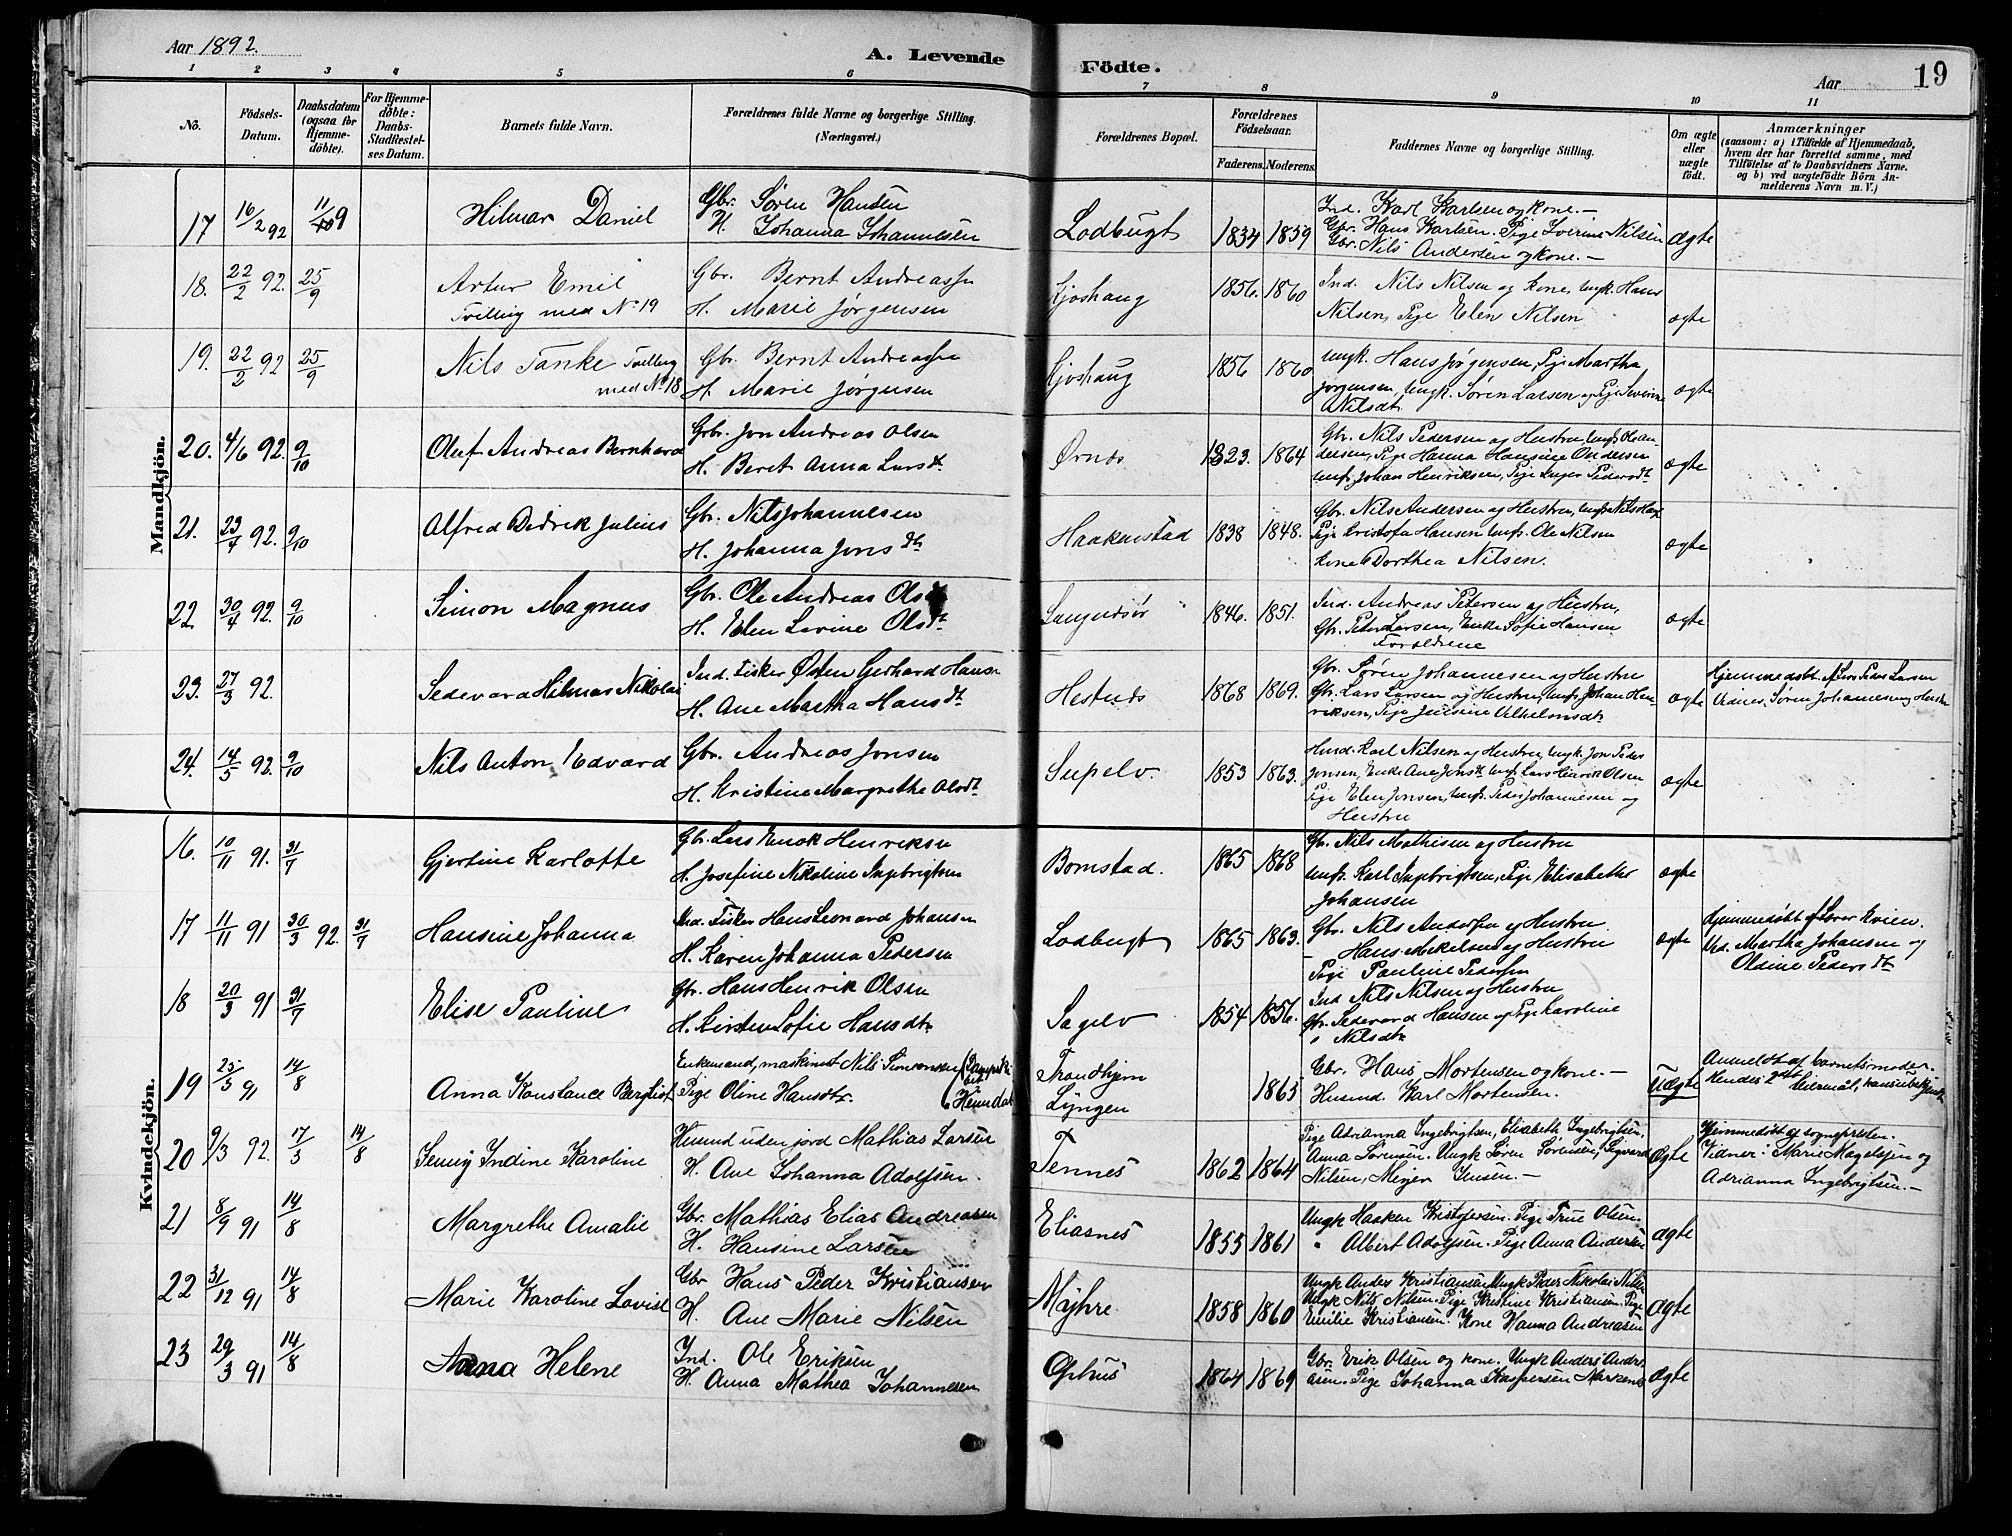 Aar 1892.
A. Levende Födte.
Aar
19
1 2 3 4 5 6 7 8 9 10 11
No.
Födsels-Datum.
Daabsdatum (ogsaa for Hjemmedöbte).
For Hjemmedöbte: Daabs-Stadfæstelses Datum.
Barnets fulde Navn.
Forældrenes fulde Navne og borgerlige Stilling. (Næringsvei.)
Forældrenes Bopæl.
Forældrenes Födselsaar.
Faderens. Moderens.
Faddernes Navne og borgerlige Stilling.
Om ægte eller uægte födt.
Anmærkninger
(saasom: a) i Tilfælde af Hjemmedaab, hvem der har forrettet samme, med Tilföielse af to Daabsvidners Navne. og b) ved uægtefödte Börn Anmelderens Navn m. V.)
Mandkjön.
17 16/2 92 Hilmar Daniel
Gbr. Søren Hansen
H. Johanna Johannesen
Lodbugt 1834 1839
Ind. Karl Karlsen og kone.—
Gbr. Hans Karlsen. Pige Iverine Nilsen
Gbr. Nils Andersen og kone.—
Ægte
18. 22/2 92. 25/9 Artur Emil
Tvilling med No 19
Gbr. Bernt Andreassen
H. Marie Jørgensen
Kjoshaug 1856. 1860
Ind. Nils Nilsen og Kone, Ungk. Hans
Nilsen, Pige Elen Nilsen
ægte
19. 22/2 92 25/9 Nils Tanke Tvilling
med No 18
Gbr. Bernt Andreassen
H. Marie Jørgensen
Kjoshaug 1856 1860
Ungk. Hans Jørgensen, Pige Martha
Jørgensen, Ungk. Søren Larsen og Pige Severine
Nilsdt.
ægte
20. 4/6 92. 9/10 Oluf Andreas Bernhard
Gbr. Jon Andreas Olsen
H. Beret Anna Larsdt.
Ørnes 1823. 1864
Gbr. Nils Pedersen og Hustru,
Pige Hanna Hansine Andersen
Johan Henriksen, Pige Inger Pedersdt.
ægte
21. 23/4 92. 9/10 Alfred Didrik Julius
Gbr. Nils Johannesen
H. Johanna Jonsdt.
Haakenstad 1838 1848.
Gbr. Nils Andersen og Hustru, Nils Hans
Pige Kristofa Hansen Ole Nilsen
Kone Dorthea Nilsen.
ægte
22. 30/4 92. 9/10 Simon Magnus
Gbr. Ole Andreas Olsen
H. Elen Lavine Olsdt.
1846. 1851.
Ind. Andreas Petersen og Hustru,
Gbr. Peter Larsen, Enke Sofie Hansen
Forældrene
ægte
23. 27/3 92. Sedevard Hilmar Nikolai
Ind. Fisker Østen Gerhard Hansen
H. Ane Martha Hansdt.
Hestnes 1868 1869.
Gbr. Søren Johannesen og Hustru
Gbr. Lars Larsen og Hustru, Johan Henriksen, Pige Jensine Vilhelmsdt.
ægte
Hjemmedøbt af Larsen
Vidner. Søren Johannesen og Hustru
24. 14/5 92. 9/10 Nils Anton Edvard
Gbr. Andreas Jonsen
H. Kristine Margrethe Olsdt.
Supelv. 1853 1863.
Karl Nilsen og Hustru, Ungk. Jon Peder
Jonsen, Enke Ane Jonsdt. Lars Henrik Olsen
Pige Elen Jonsen, Peder Johannesen og
Hustru
ægte
Kvindekjön.
16. 10/11 91. 31/7 Gjertine Karlotte
Gbr. Lars Enok Henriksen
H. Josefine Nikoline Ingebrigtsen
Bomstad. 1865 1868
Gbr. Nils Mathisen og Hustru
Karl Ingebrigtsen, Pige Elisabeth
Johansen
ægte
17 11/11 91 30/3 92. 31/7 Hansine Johanna
Ind. Fisker Hans Leonard Johansen
H. Karen Johanna Pedersen
Lodbugt 1865 1863.
Gbr. Nils Andersen og Hustru
— Hans Mikelsen og Hustru
Pige Pauline Pedersen
ægte
Hjemmedøbt af Lærer Kvien.
Vid. Martha Johansen og
Oldine Pedersdt.
18 20/3 91 31/7 Elise Pauline
Gbr. Hans Henrik Olsen
H. Kirsten Sofie Hansdt.
Sagelv 1854 1856.
Ind Nils Nilsen og Hustru
Gbr. Sedevard Hansen og Pige Karoline
Nilsdt.
19 25/3 91 14/8 Anna Konstance Bergliot
Enkemand, maskinist Nils Simonsen
Pige Oline Hansdtr.
Trondhjem
Lyngen
1863
Gbr. Hans Mortensen og kone.—
Husmd. Karl Mortensen.
Uægte
Anmeldt af barnets moder.
Hendes 2det leiermål, hans ubekjendt
20 9/3 92. 17/3 14/8 Jenny Indine Karoline
Husmd uden jord Mathias Larsen
H. Ane Johanna Adolfsen.
Tennes 1862 1864
Pige Adrianna Ingebrigtsen, Elisabeth Ingebrigtsen,
Anna Sørensen. Ungk Søren Sørensen, Sigvard
Nilsen, Meyer Jensen.—
Ægte
Hjemmedøbt af sognepresten.
Vidner: Marie Magelssen og
Adrianna Ingebrigtsen.—
21 8/9 91 14/8 Margrethe Amalie
Gbr. Mathias Elias Andreasen
H. Hansine Larsen
Eliasnes 1855 1861
Ungk Haaken Kristofersen. Pige Trine Olsen.
" Albert Adolfsen. Pige Anna Andersen
Ægte
22 31/12 91 14/8 Marie Karoline Lovise
Gbr Hans Peder Kristiansen
H. Ane Marie Nilsen
Mýhre 1858 1860
Ungk Anders Kristiansen. Ungk Peder Nikolai Nilsen
Ungk Nils Nilsen. Pige Kristine Kristiansen. Pige
Emilie Kristiansen. Kone Hanna Andreasen
Ægte
23 29/3 91 14/8 Anna Helene
Ind. Ole Eriksen
H. Anna Mathea Johannesen
1864 1869
Gbr. Erik Olsen og kone. Ungk Anders Andreasen. Pige Johanna Kaspersen Markenes
Ægte